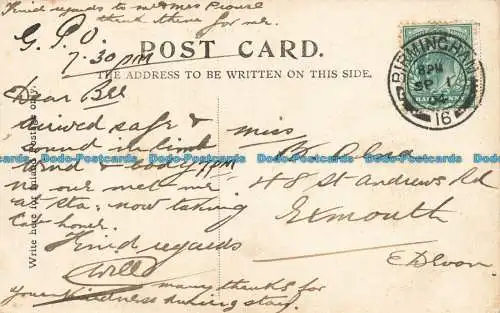 Kind regards to Mr & Mrs Prouse
thank them for me.
G.P.O.
7.30 pm
POST CARD.
THE ADDRESS TO BE WRITTEN ON THIS SIDE.
BIRMINGHAM
8 PM
SP 1
16
Dear Bee
arrived safe &
sound in limb
wind & body 7 PM
no one met me
at sta: now taking
Cab home.
Kind regards
Will
many thanks for
your kindness during stay.
Write here for Inland Postage only.
Miss
48 St Andrews Rd
Exmouth
Devon
Dodo-Postcards Dodo-Postcards Dodo-Postcards Dodo-Postcards Dodo-Postcards Dodo-Postcards